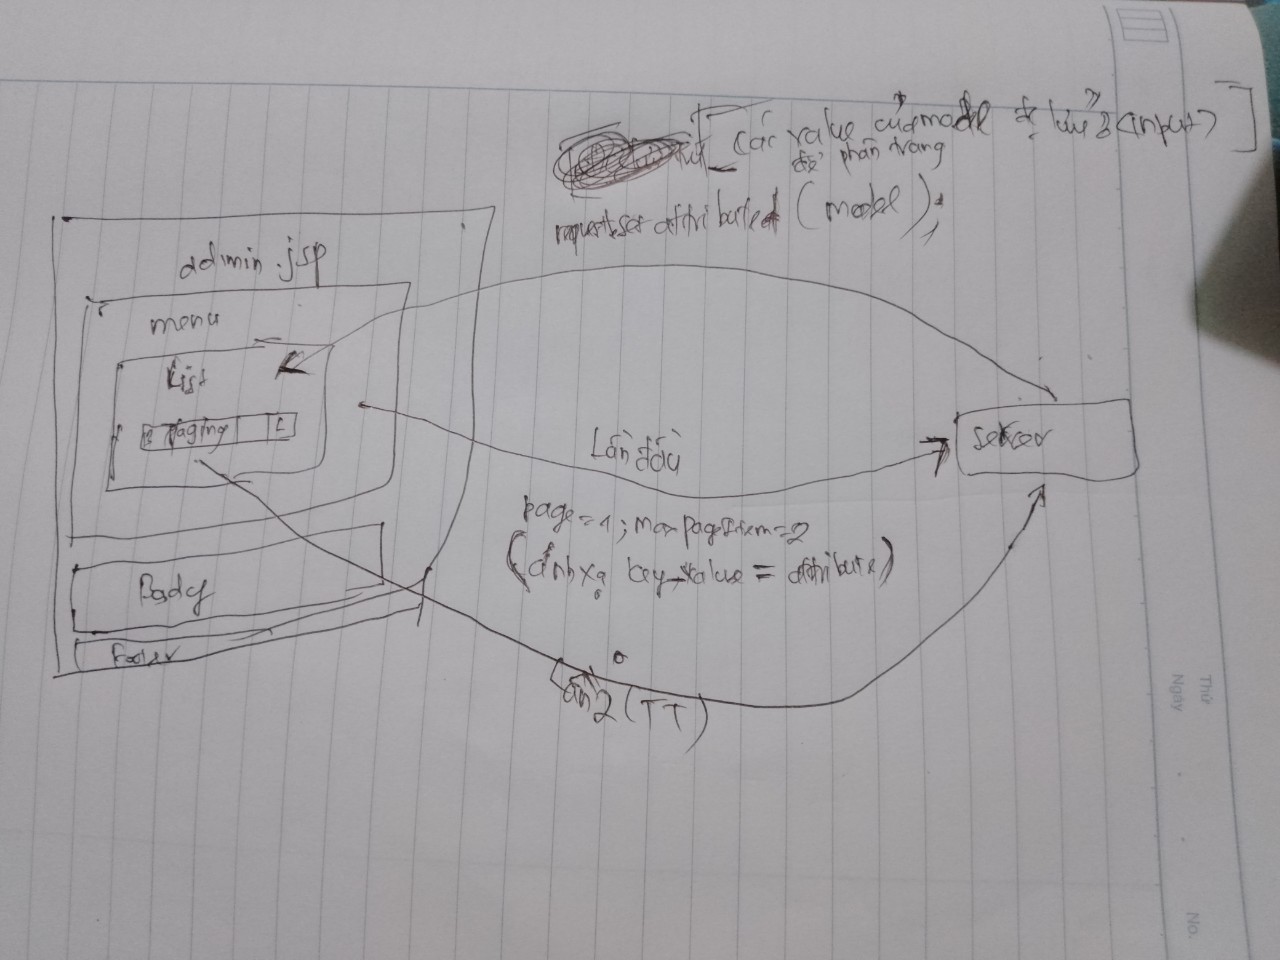 các value của model để lưu <input> ]
để phân trang
request.set attribute (model);
admin.jsp
menu
List
Paging
Lần đầu
server
page=1; maxPageItem=2
(ánh xạ key_value = attribute)
Body
Footer
Lần 2 (TT)
Thứ
Ngày
No.